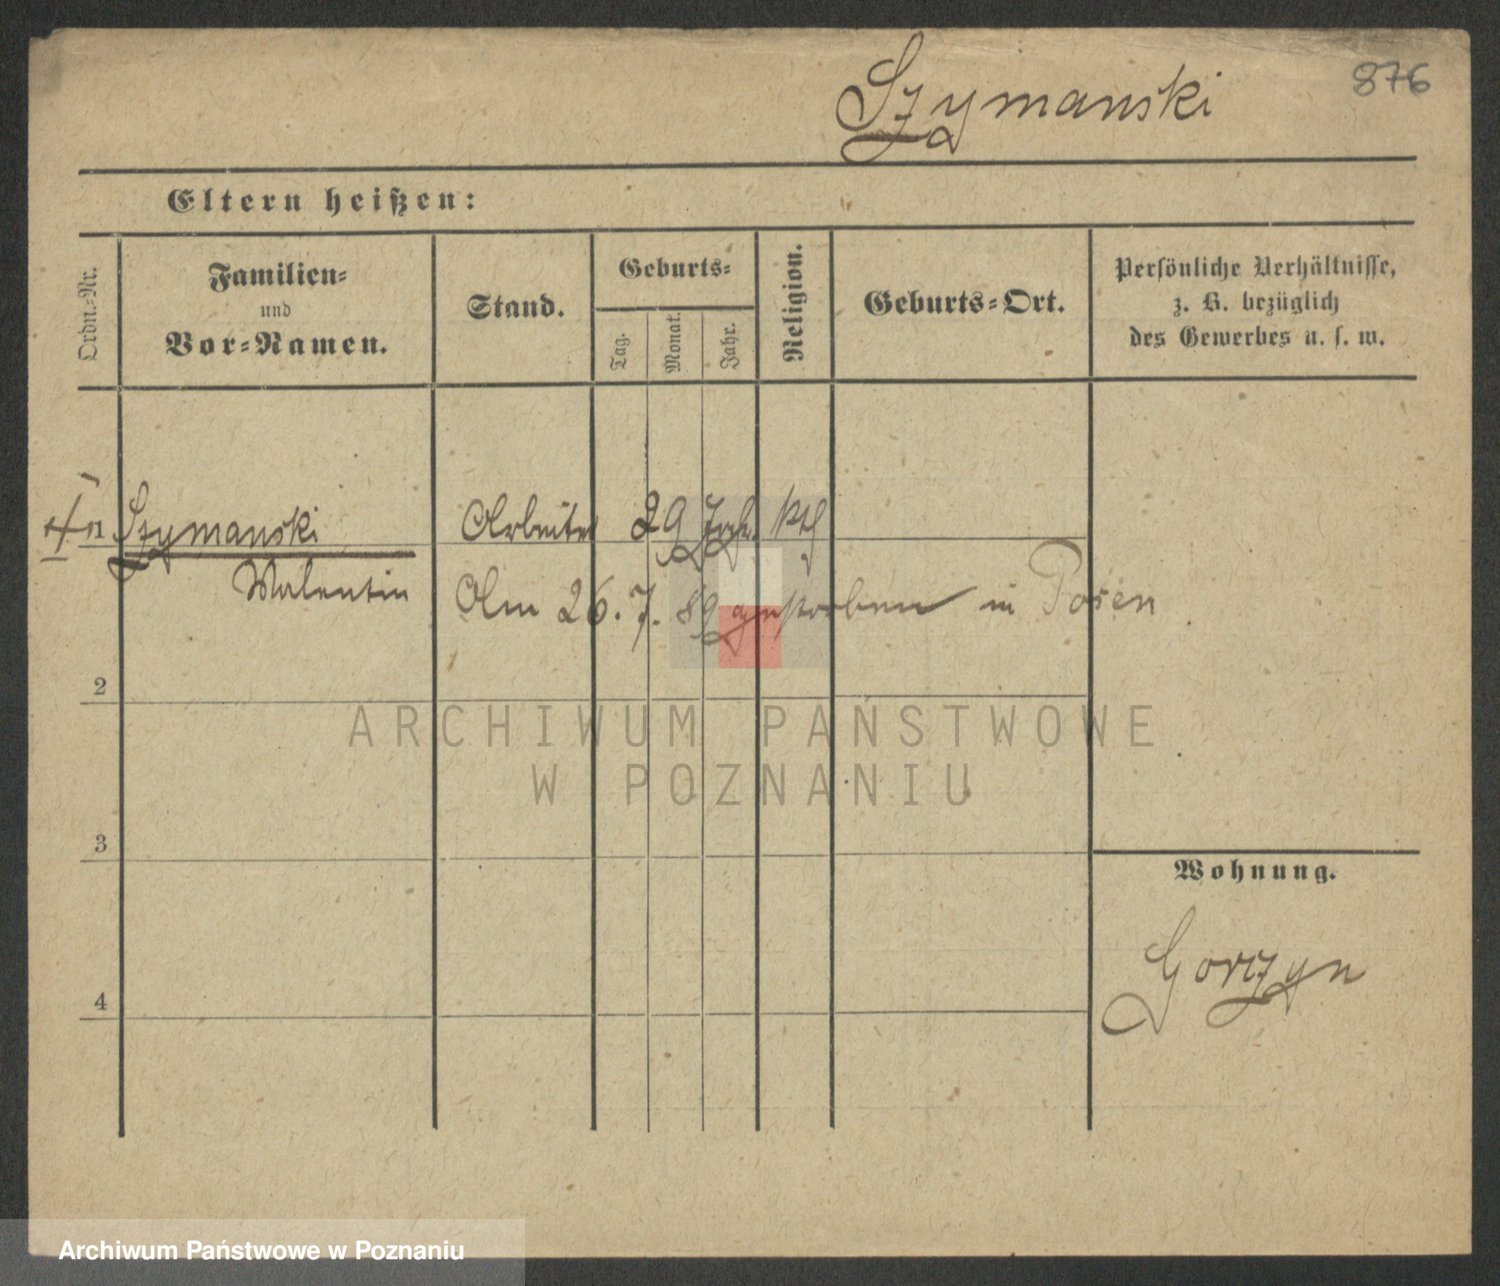 Szymanski 876
Eltern heißen:
Ordn.-Nr.
Familien-
und
Vor-Namen.
Stand.
Geburts-
Tag.
Monat.
Jahr.
Religion.
Geburts-Ort.
Persönliche Verhältnisse,
z. B. bezüglich
des Gewerbes u. s. w.
1 Szymanski Arbeiter 29 Jah. kth
Walentin Am 26. 7. 89 gestorben in Posen
2
3
4
Wohnung.
Gorczyn
ARCHIWUM PAŃSTWOWE
W POZNANIU
Archiwum Państwowe w Poznaniu